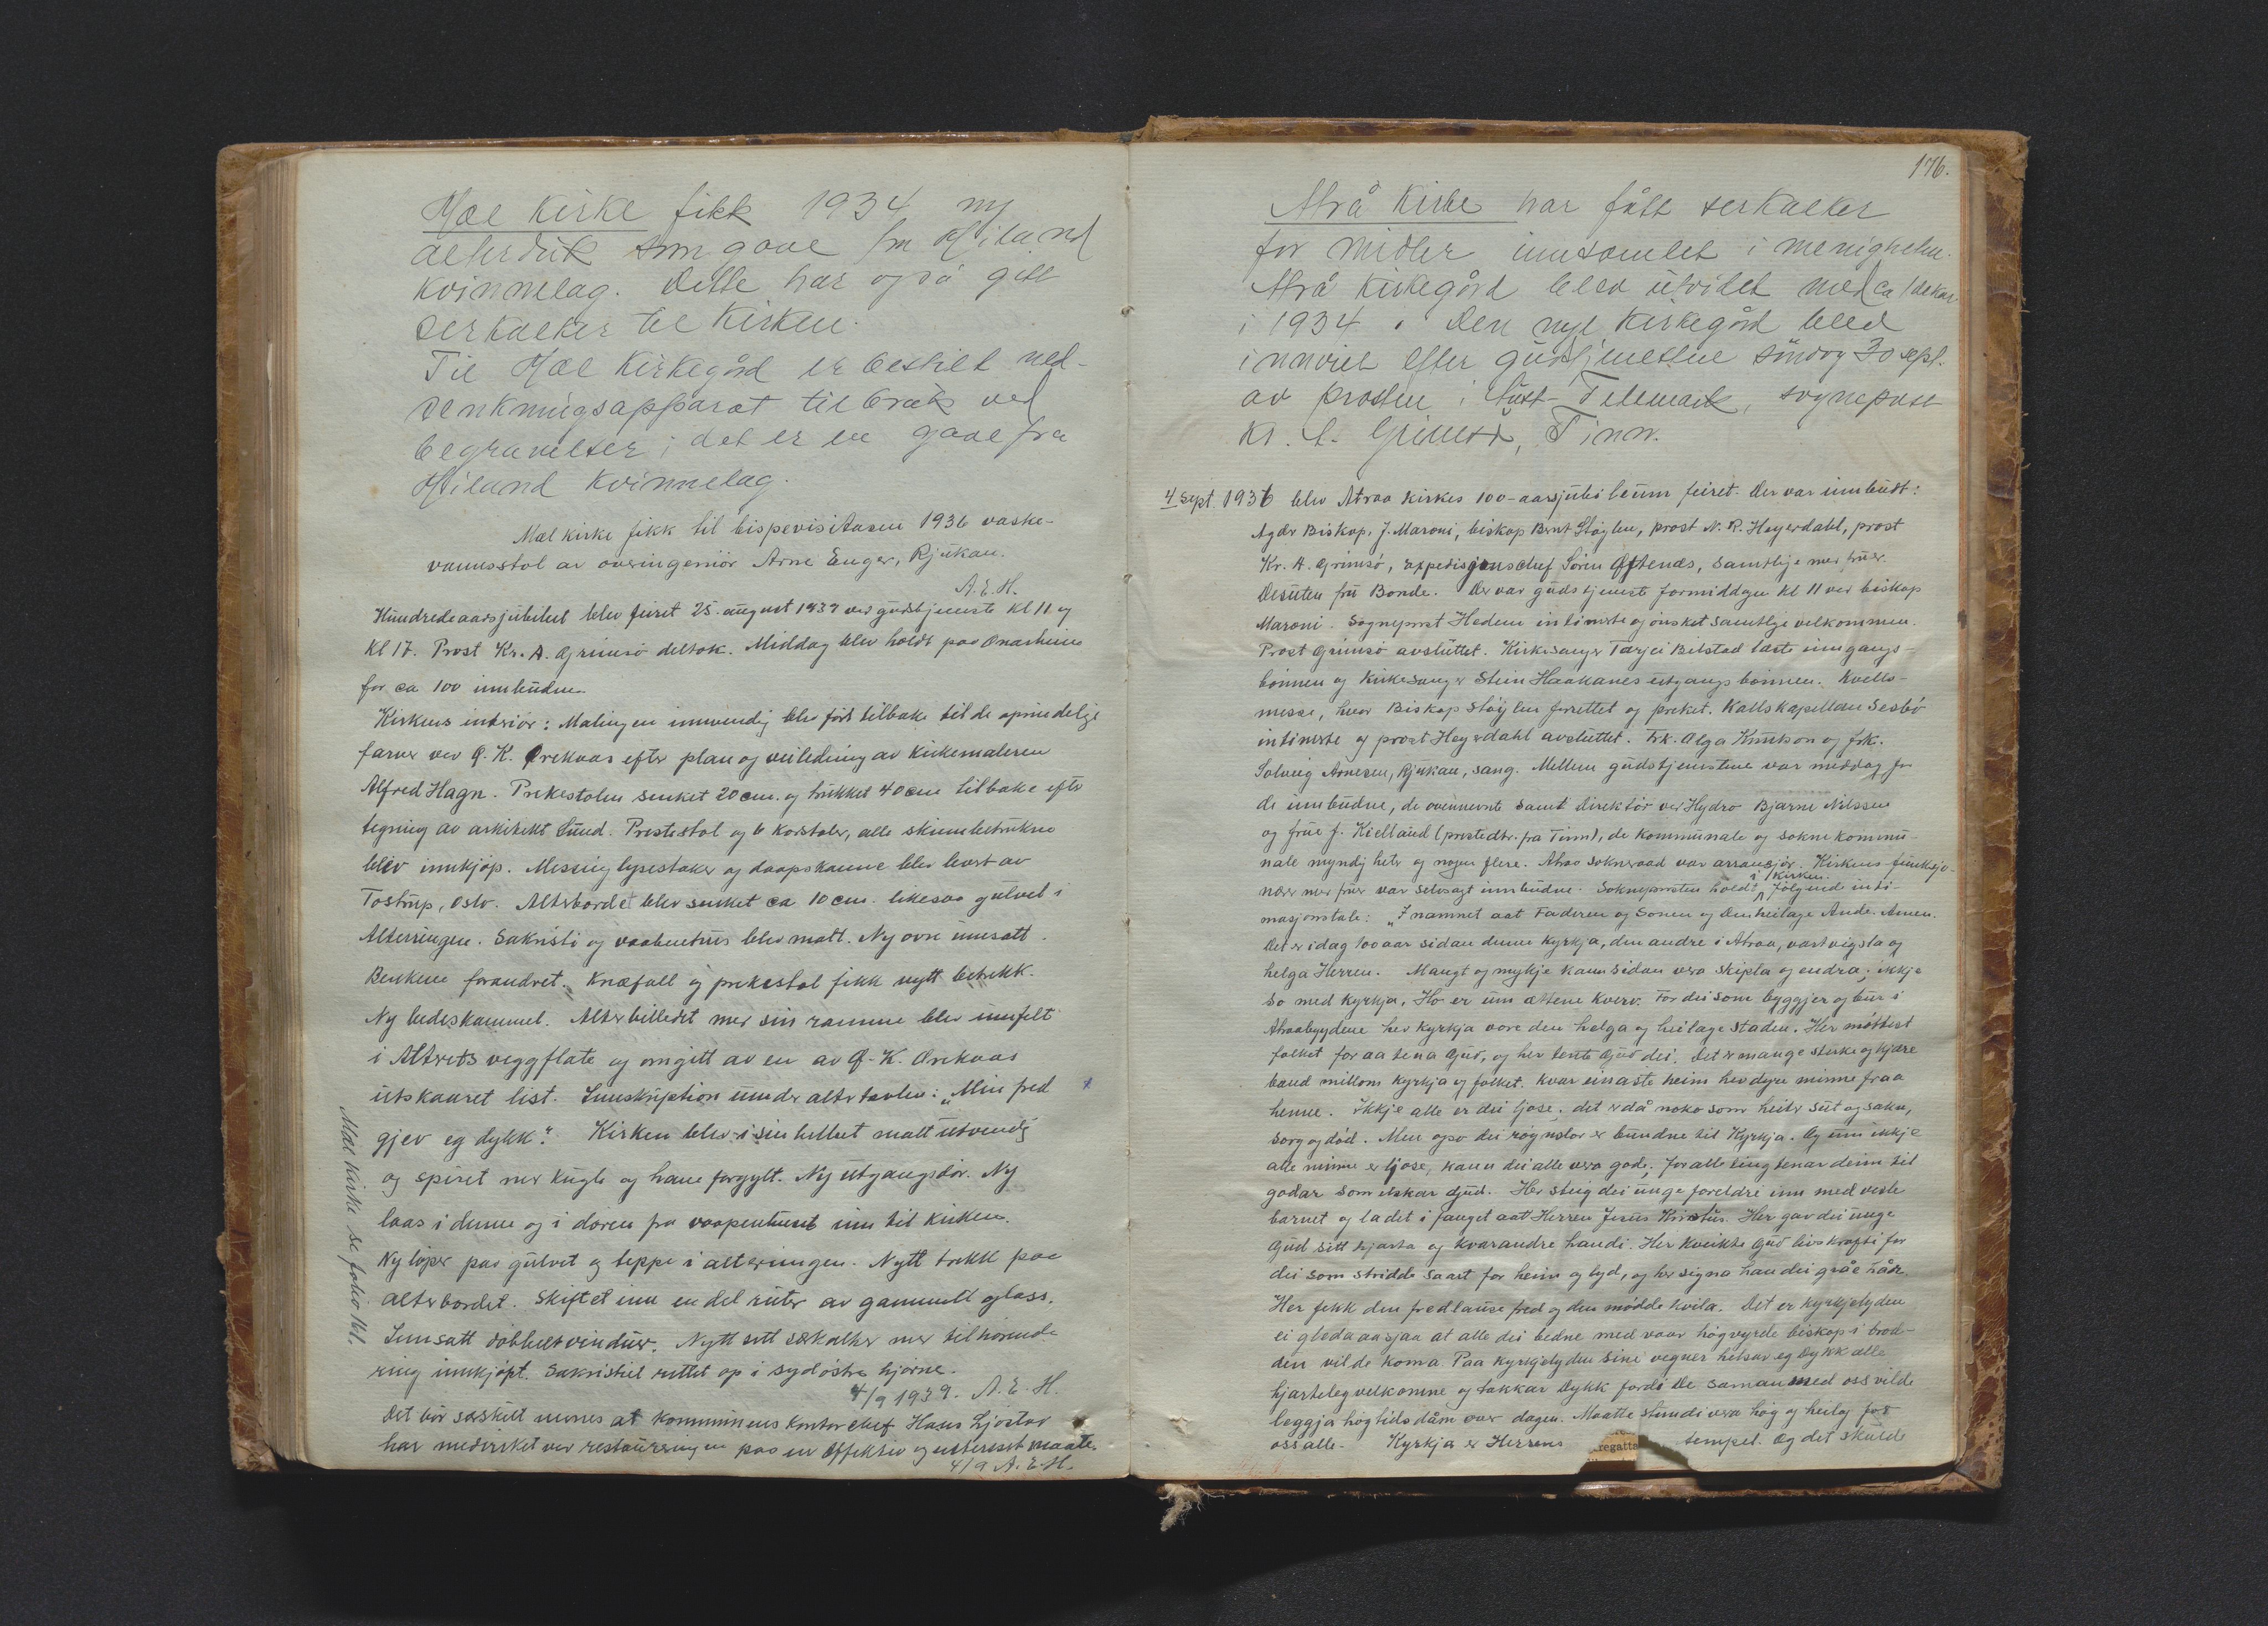 Mæl Kirke fikk 1934 ny
alterduk som gave fra Miland
Kvinnelag. Dette har også gitt
særkalker til Kirken.
Til Mæl Kirkegård er bestilt ned-
senkningsapparat til bruk ved
begravelser; det er en gave fra
Miland Kvinnelag.
Mæl kirke fikk til bispevisitasen 1936 vaske-
vannsstol av overingeniör Arne Enger, Rjukan.
A. E. H.
Hundredeaarsjubileet blev feiret 25. august 1939 ved gudstjeneste kl 11 og
kl 17. Prost Kr. A. Grimsö deltok. Middag blev holdt paa Onarheim
for ca 100 innbudne.
Kirkens interiör: Malingen innvendig blev fört tilbake til de oprindelige
farver ved G. K. Örekvas efter plan og veiledning av kirkemaleren
Alfred Hagn. Prekestolen senket 20 cm. og trukket 40 cm tilbake efter
tegning av arkitekt Lund. Prestestol og 6 korstoler, alle skinnbetrukne
blev innkjöp. Messing lysestaker og daapskanne blev levert av
Tostrup, Oslo. Alterbordet blev senket ca 10 cm. likesaa gulvet i
Alterringen. Sakristi og vaabenhus blev malt. Ny ovn innsatt.
Benkene forandret. Knæfall og prekestol fikk nytt betrekk.
Ny bedeskammel. Alterbilledet med sin ramme blev innfelt
i Altrets veggflate og omgitt av en av G. K. Örekvas
utskaaret list. Innskription under altertavlen: "Min fred
gjev eg dykk". Kirken blev i sin helhet malt utvendig
og spiret med kugle og hane forgylt. Ny utgangsdör. Ny
laas i denne og i dören fra vaapenhuset inn til kirken.
Ny löper paa gulvet og teppe i alterringen. Nytt trekk paa
alterbordet. Skiftet inn en del ruter av gammelt glass.
Innsatt dobbeltvinduer. Nytt sett særkalker med tilhörende
ring innkjöpt. Sakristiet rettet op i sydöstre hjörne.
4/9 1939. A. E. H.
Det bör særskilt nevnes at kommunens kontorchef Hans Ljöstad
har medvirket ved restaureringen paa en effektiv og interessert maate.
4/9 A. E. H.
Mæl kirke se folio 161.
176.
Atrå Kirke har fått særkalker
for midler innsamlet i menigheten.
Atrå Kirkegård blev utvidet med ca 1 dekar
i 1934. Den nye Kirkegård blev
innviet efter gudstjenesten söndag 30 sept.
av prosten i Øust-Telemark, sogneprest
Kr. A. Grimsö, Tinn.
4 Sept. 1936 blev Atraa kirkes 100-aarsjubileum feiret. Der var innbudt:
Agder Biskop, J. Maroni, biskop Bernt Stöylen, prost N. R. Heyerdahl, prost
Kr. A. Grimsö, Expedisjonschef Sören Oftenæs, samtlige med fruer.
Desuten fru Bonde. Der var gudstjeneste formiddagen kl 11 ved biskop
Maroni. Sogneprest Hedem intimerte og önsket samtlige velkommen.
Prost Grimsö avsluttet. Kirkesanger Tarjei Bitstad læste inngangs-
bönnen og kirkesanger Stein Haakanes utgangsbönnen. Kvelds-
messe, hvor Biskop Stöylen forrettet og preket. Kallskapellan Sesbö
intimerte og prost Heyerdahl avsluttet. Frk. Olga Knutson og frk.
Solveig Arnesen, Rjukan, sang. Mellem gudstjenestene var middag for
de innbudne, de ovennevnte samt direktör ved Hydro Bjarne Nilssen
og frue f. Kielland (prestedtr. fra Tinn), de kommunale og sokne kommu-
nale myndigheter og nogen flere. Atraa sokneraad var arrangjör. Kirkens funksjo-
nærer med fruer var selvsagt innbudne. Sokneprosten holdt i kirken fölgende inti-
masjonstale: "I namnet aat Faderen og Sonen og Den heilage Ande. Amen.
Det er idag 100 aar sidan denne kyrkja, den andre i Atraa, vart vigsla og
helga Herren. Mangt og mykje kann sidan vera skipla og endra; ikkje
so med kyrkja. Ho er um ættene kverv. For dei som byggjer og bur i
Atraabygdene hev kyrkja vore den helga og heilage staden. Her möttest
folket for aa tena Gud, og her tente Gud dei. Det er mange sterke og kjære
band millom kyrkja og folket. Kvar einaste heim hev dyre minne fraa
henne. Ikkje alle er dei ljose; det er då noko som heiter sut og sakn,
sorg og död. Men ogso dei rögnslor er bundne til Kyrkja. Og um ikkje
alle minne er ljose, kann dei alle vera gode; for alle ting tenar deim til
godar som elskar Gud. Her steig dei unge foreldri inn med vesle
barnet og la det i fanget aat Herren Jesus Kristus. Her gav dei unge
Gud sitt hjarta og kvarandre handi. Her kveikte Gud livskrafti for
dei som stridde saart for heim og lyd, og her signa han dei gråe hår.
Her fekk den fredlause fred og den mödde kvila. Det er kyrkjelyden
ei gleda aa sjaa at alle dei bedne med vaar högvyrde biskop i brod-
den vilde koma. Paa kyrkjelyden sine vegner helsar eg Dykk alle
hjarteleg velkomne og takkar Dykk fordi De saman med oss vilde
leggja högtidsdåm over dagen. Maatte stundi vera hög og heilag for
oss alle. Kyrkja er Herrens tempel. Og det skulde
regatta